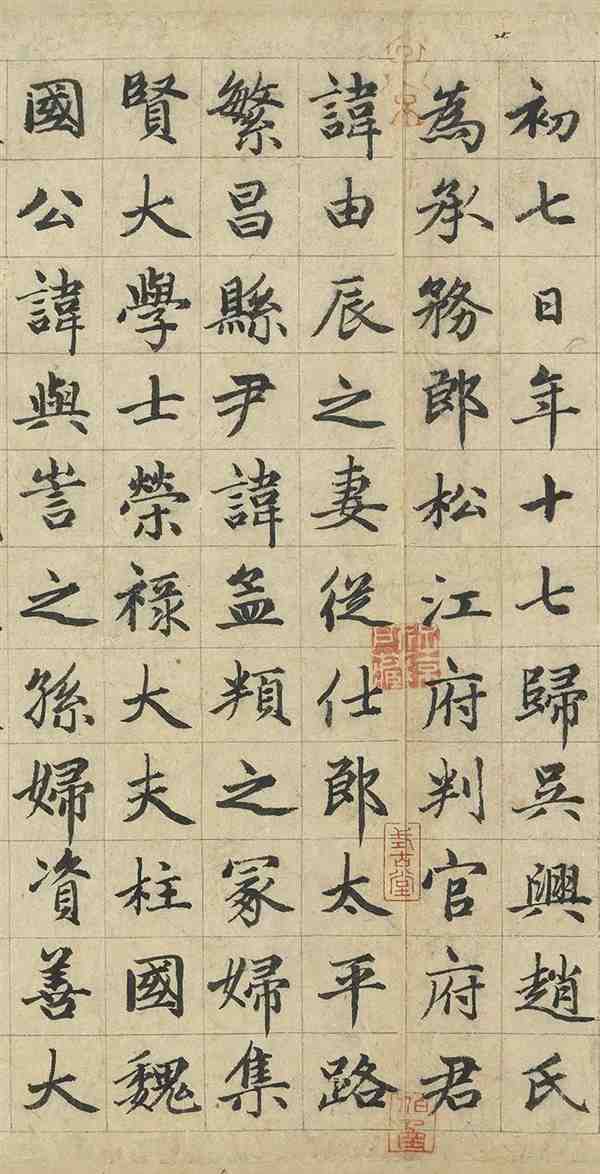 初七日年十七歸吳興趙氏
為承務郎松江府判官府君
諱由辰之妻從仕郎太平路
繁昌縣尹諱孟頖之冢婦集
賢大學士榮祿大夫柱國魏
國公諱與訔之孫婦資善大
式古堂